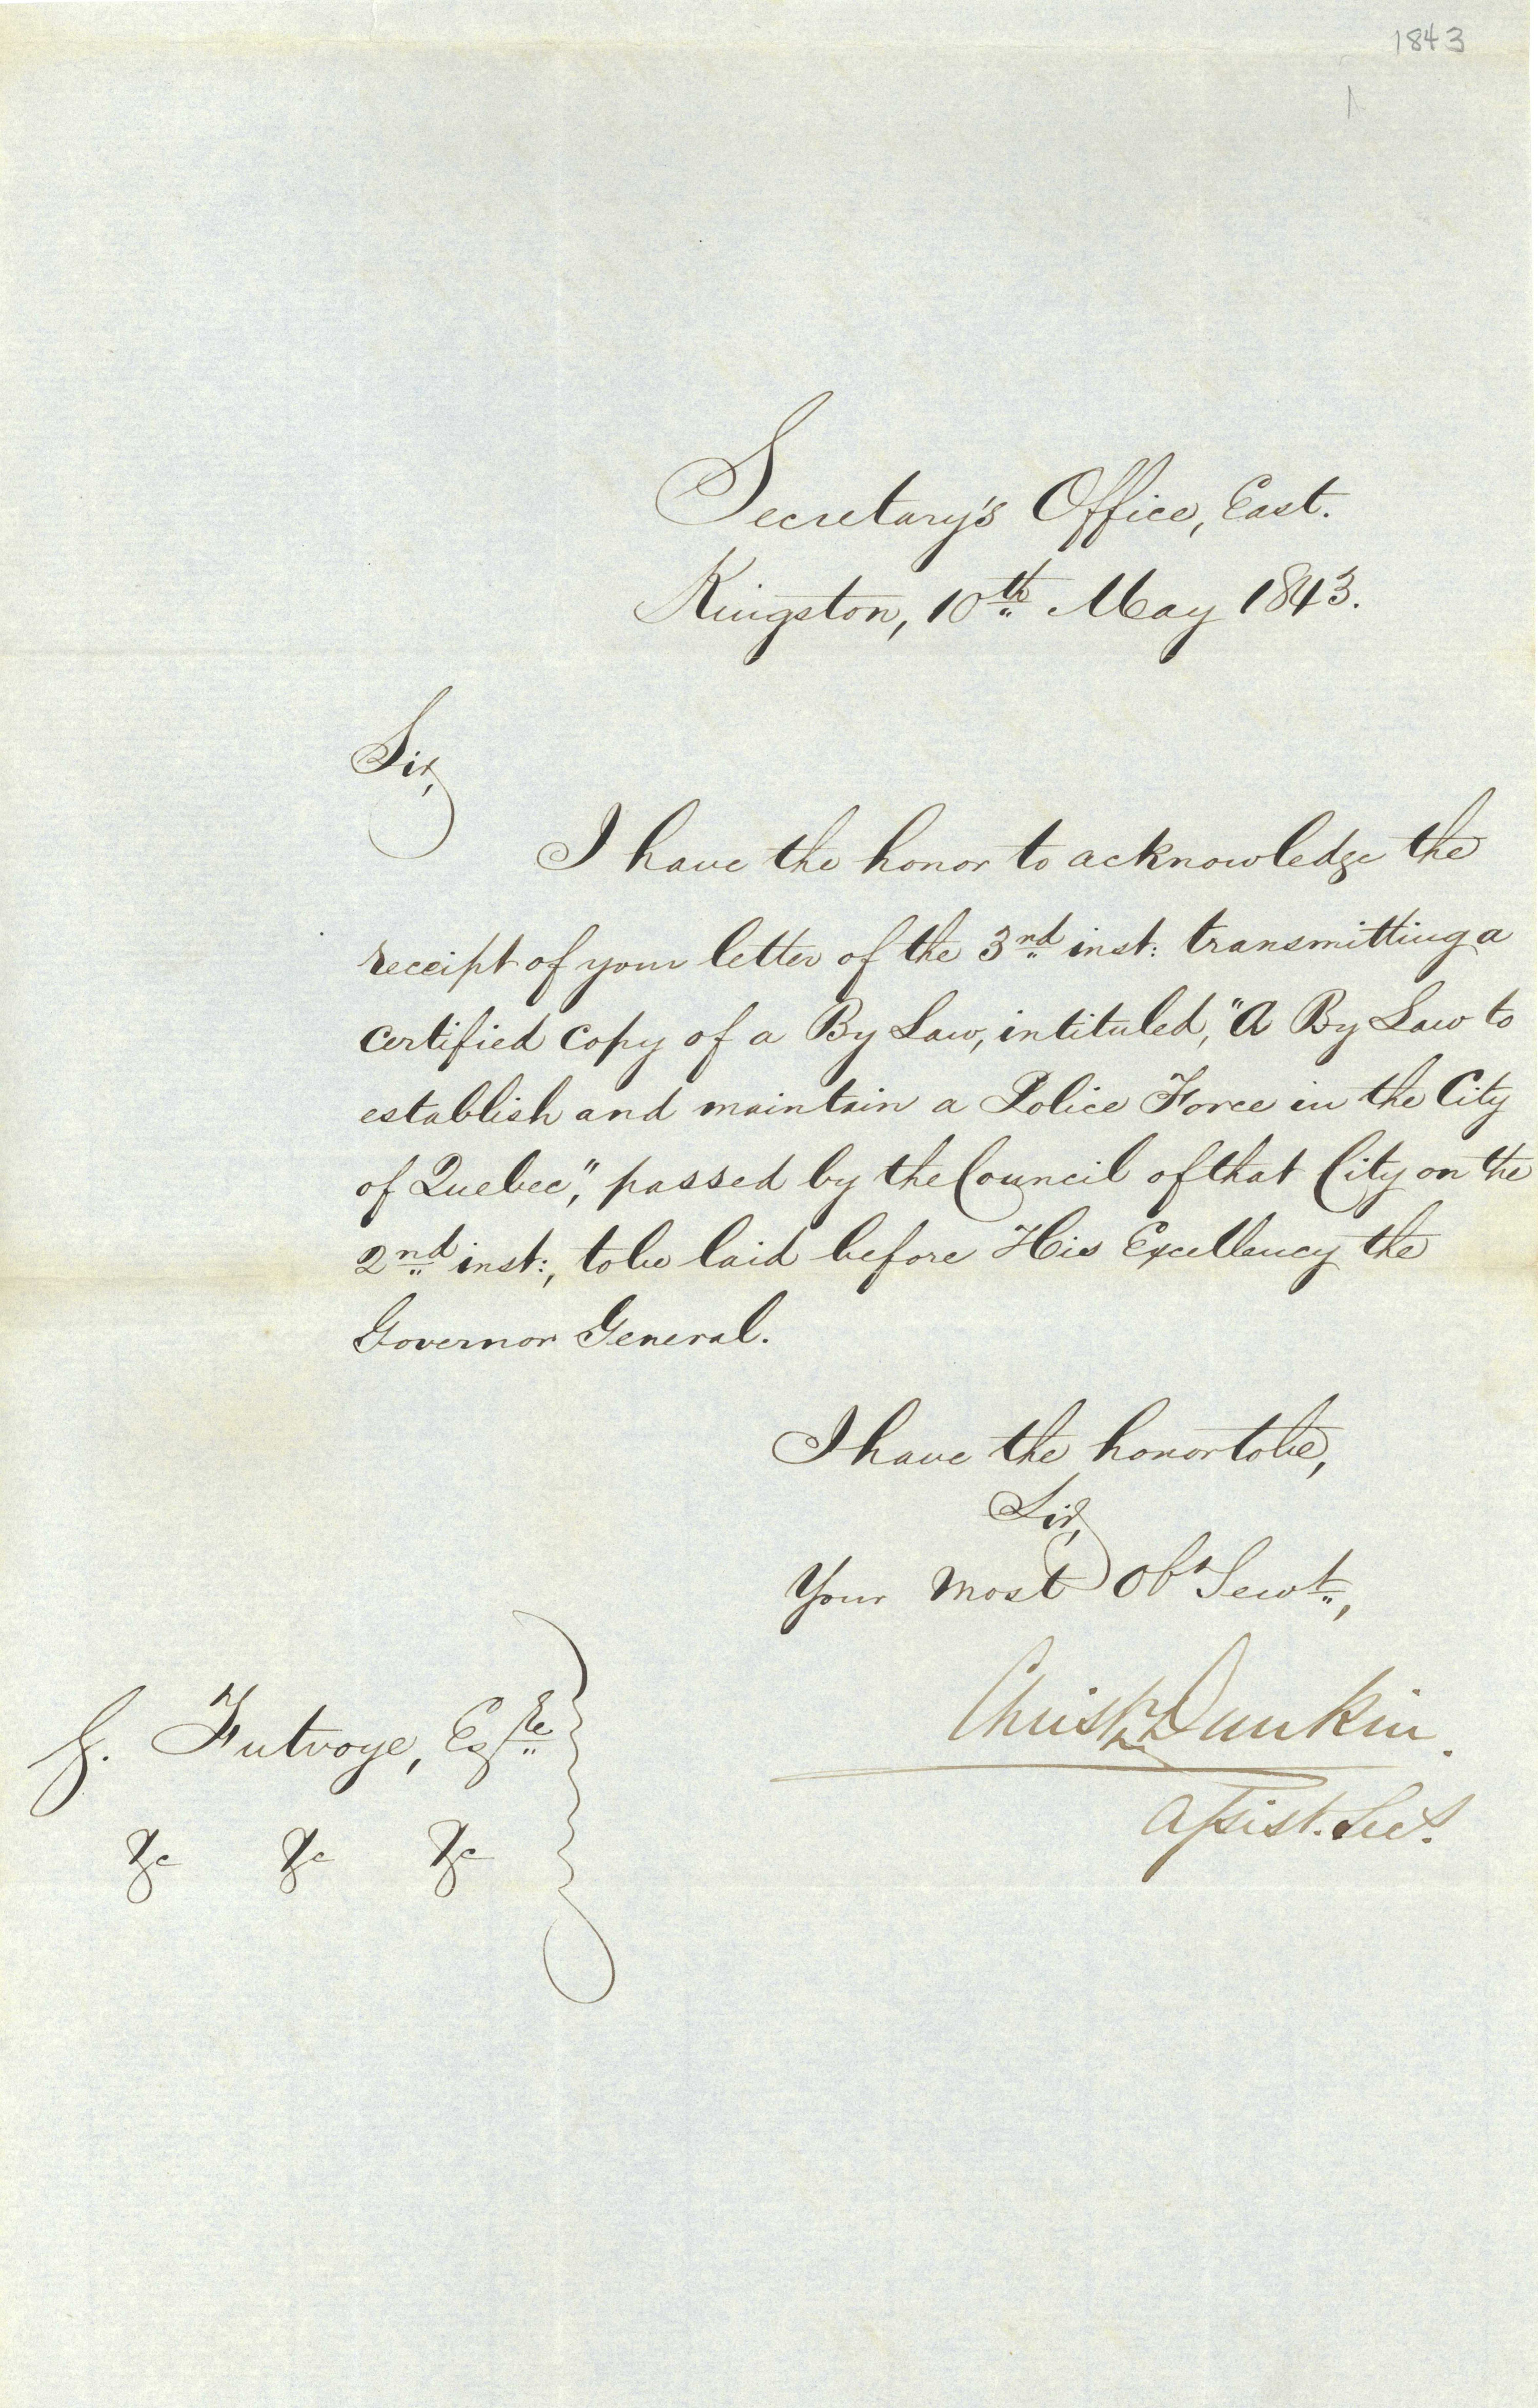 1843
Secretary's Office, East.
Kingston, 10th May 1843.
Sir,
I have the honor to acknowledge the
receipt of your letter of the 3rd inst: transmitting a
certified copy of a By Law, intituled, "A By Law to
establish and maintain a Police Force in the City
of Quebec," passed by the Council of that City on the
2nd inst:, to be laid before His Excellency the
Governor General.
I have the honor to be,
Sir,
Your most Obt Servt,
Christr Dunkin.
Assist. Secy.
G. Futvoye, Esqre
&c &c &c